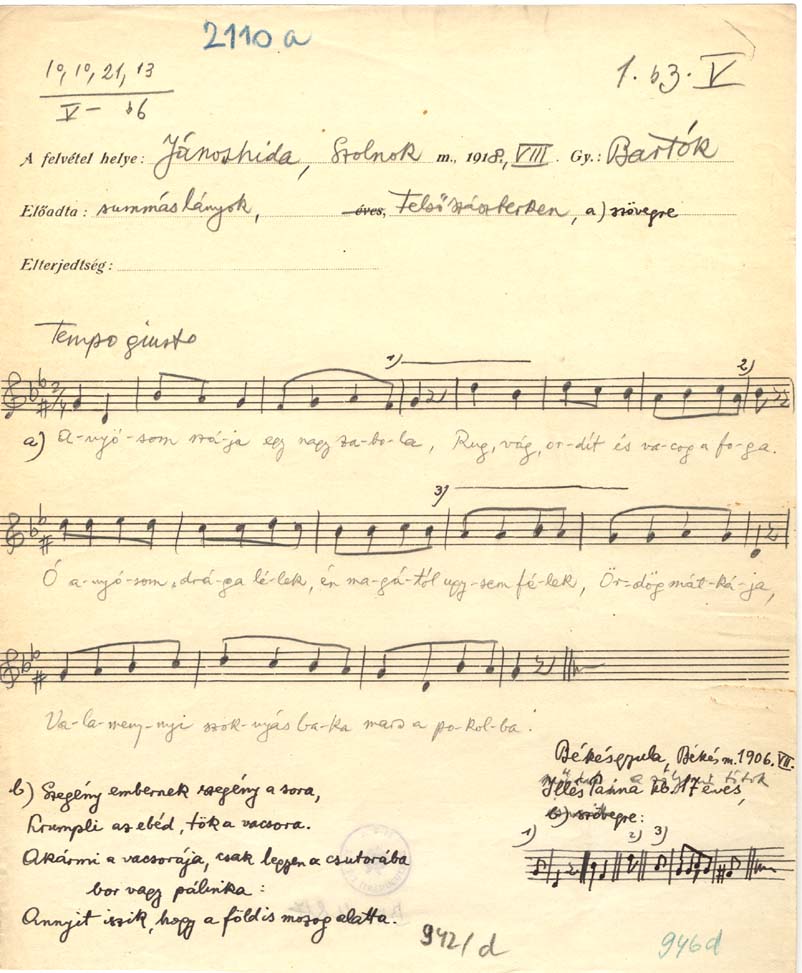 2110 a
10, 10, 21, 13
V – b6
1. b3. V
A felvétel helye: Jánoshida, Szolnok m., 1918., VIII. Gy.: Bartók
Előadta: summáslányok, éves, Felsőszászberken, a) szövegre
Elterjedtség:
Tempo giusto
1)
2)
2/4
a) A-nyó-som szá-ja egy nagy za-bo-la, Rug, vág, or-dít és va-cog a fo-ga.
3)
Ó a-nyó-som, drá-ga lé-lek, én ma-gá-tól ugy-sem fé-lek, Ör-dög mát-ká-ja,
Va-la-meny-nyi szok-nyás ba-ka mars a po-kol-ba.
Békésgyula, Békés m. 1906. VII.
Illés Panna kb. 17 éves,
b) szövegre:
1) 2) 3)
b) Szegény embernek szegény a sora,
Krumpli az ebéd, tök a vacsora.
Akármi a vacsorája, csak legyen a csutorába
bor vagy pálinka:
Annyit iszik, hogy a föld is mozog alatta.
942/d
946d